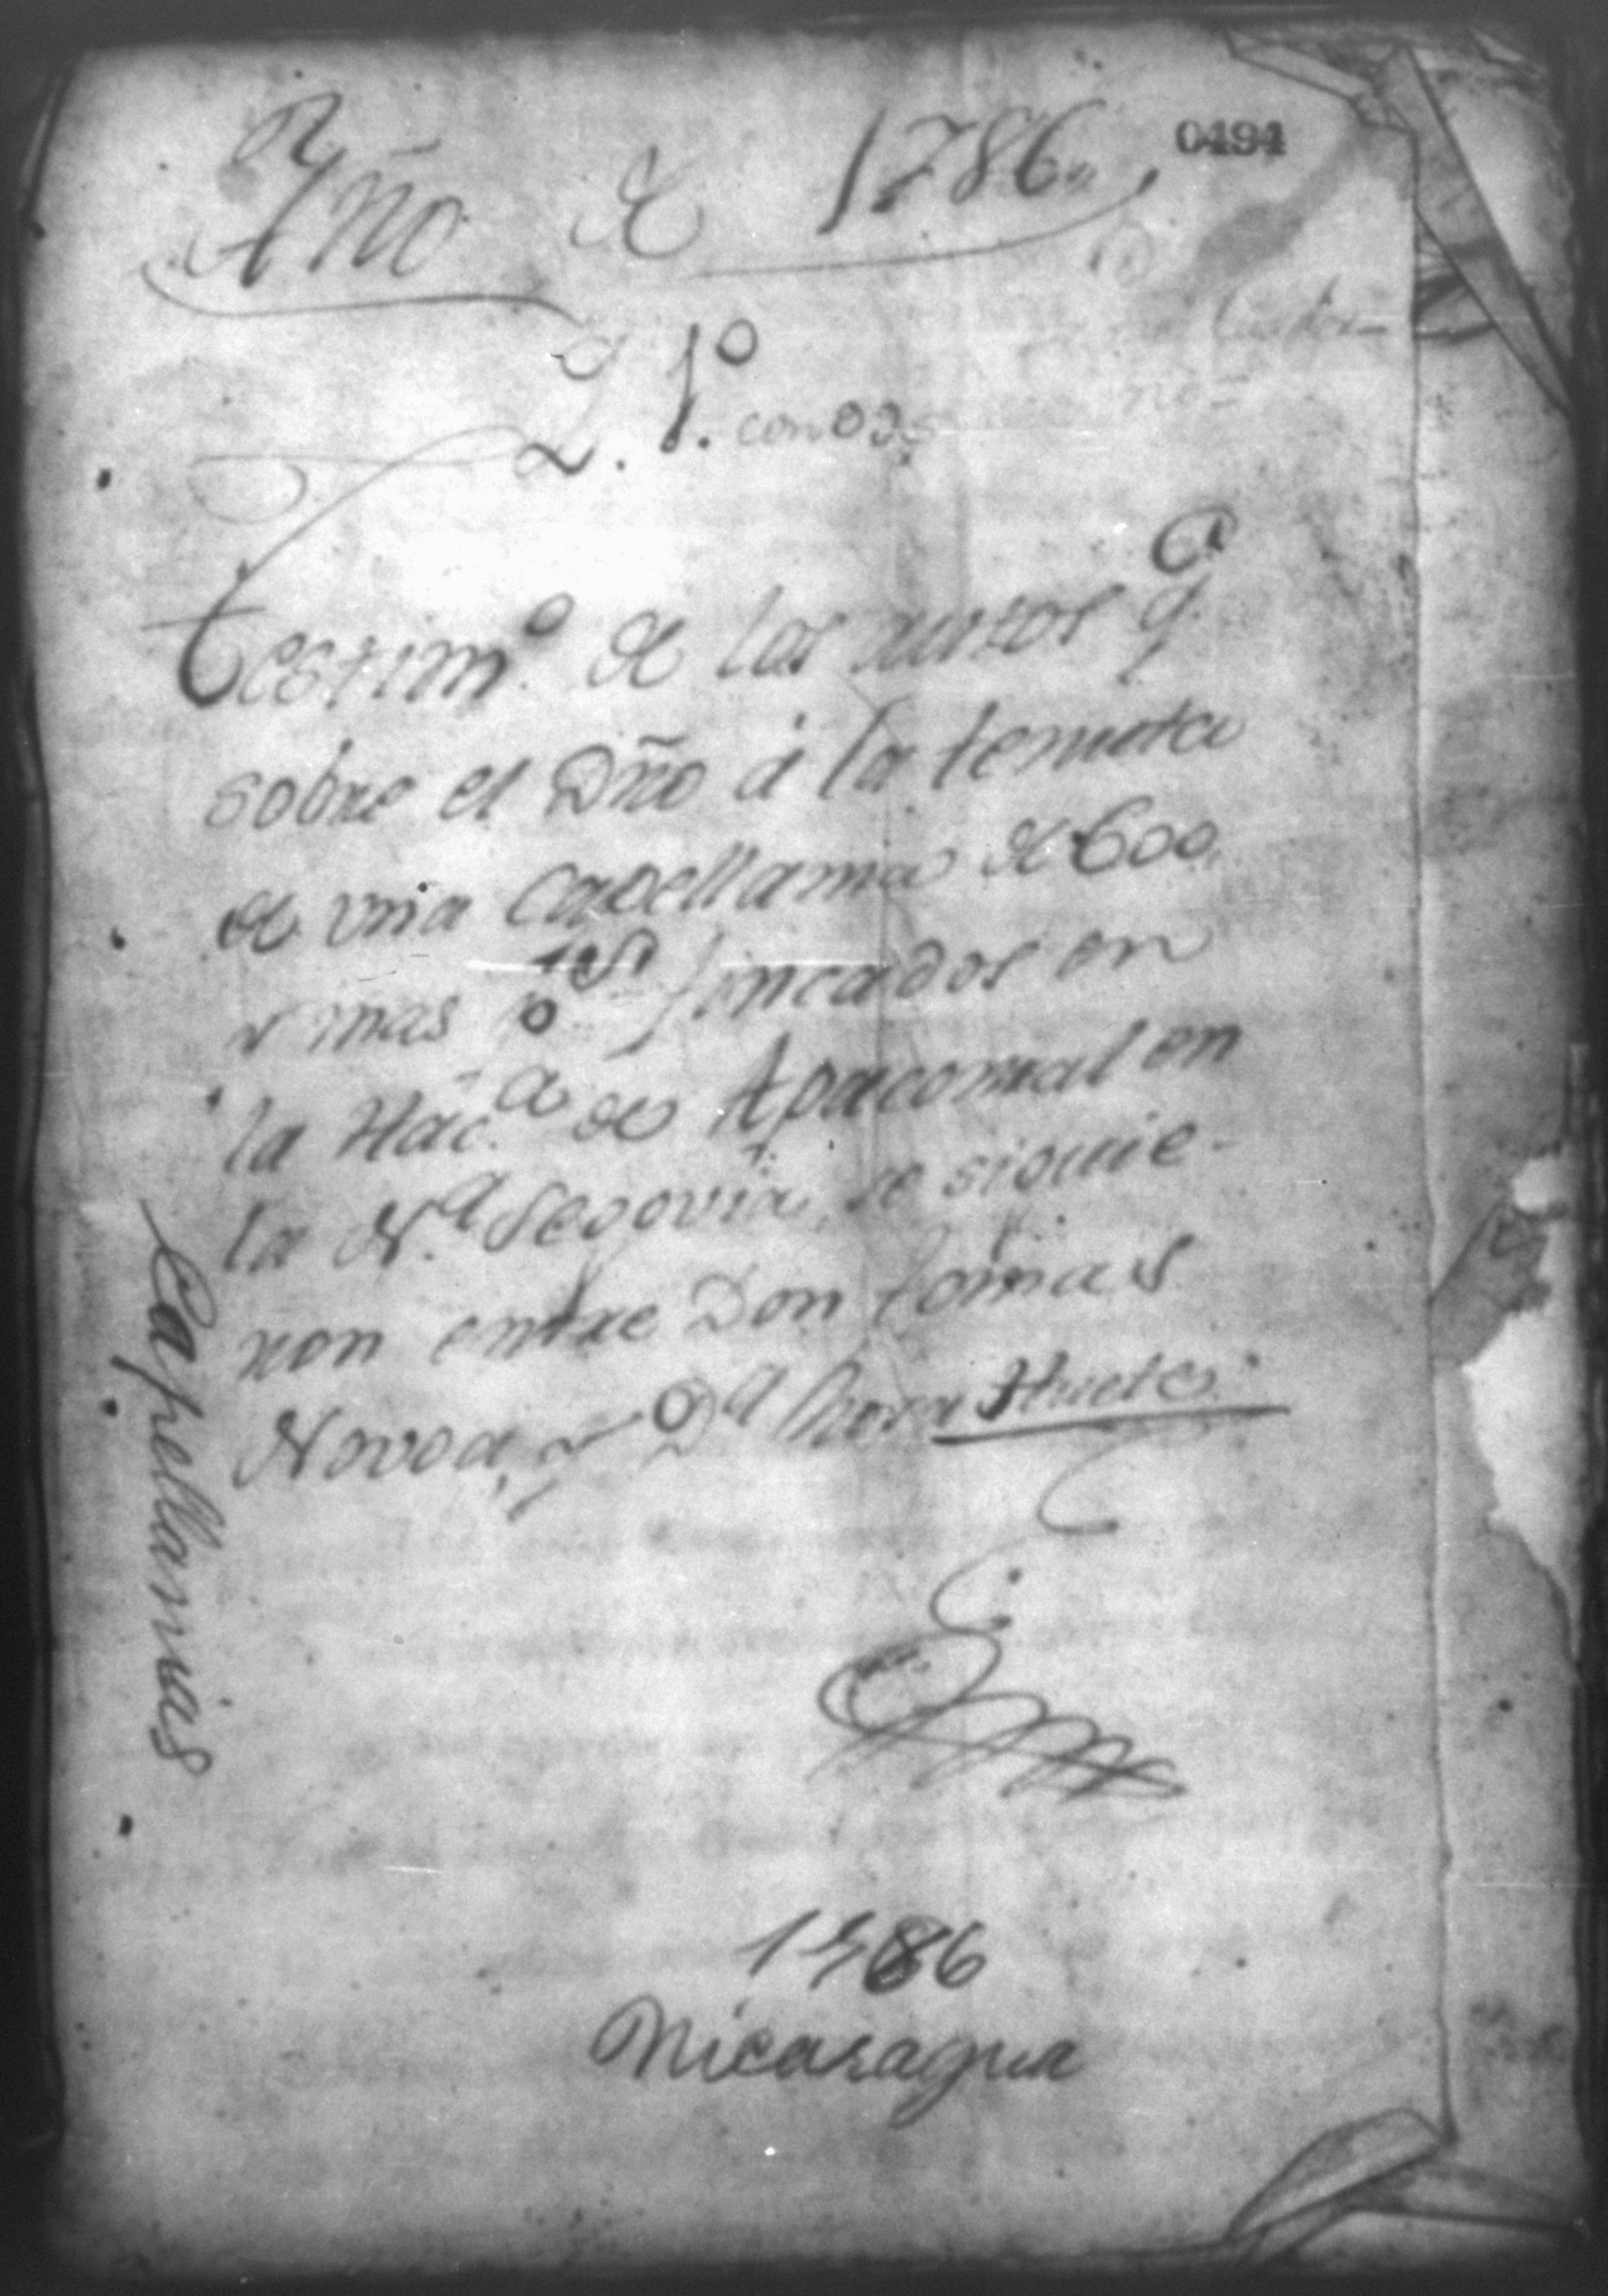 0494
Año de 1786.
L. 1º.
Testimº de los autos q.
sobre el Dr̃o á la tenuta
de vna Capellania de 600
y mas pˢ fincados en
la Hac.ª de Apacorral en
la N.ª Segovia, se siguie-
ron entre Don Tomas
Novoa, y Dª Huete.
Capellanias
1786
Nicaragua